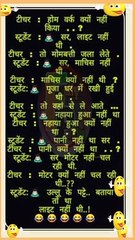 टीचर : होम वर्क क्यों नहीं
किया . . ?
स्टूडेंट: सर, लाइट नहीं
थी .
टीचर : तो मोमबत्ती जला लेते
स्टूडेंट: सर, माचिस
नहीं थी .
टीचर : माचिस क्यों नहीं थी ?
स्टूडेंट : पूजा घर में रखी हुई
थी .
टीचर : तो वहां से ले आते ...
स्टूडेंट : नहाया हुआ नहीं था
टीचर : नहाया हुआ क्यों नहीं
था . . ?
स्टूडेंट : पानी नहीं था सर
टीचर : पानी क्यों नहीं था . . ?
स्टूडेंट : सर मोटर नहीं चल
रही थी.
टीचर : मोटर क्यों नहीं चल रही
थी..??
स्टूडेंट : उल्लू के पट्ठे.. बताया
तो था
लाइट नहीं थी..!